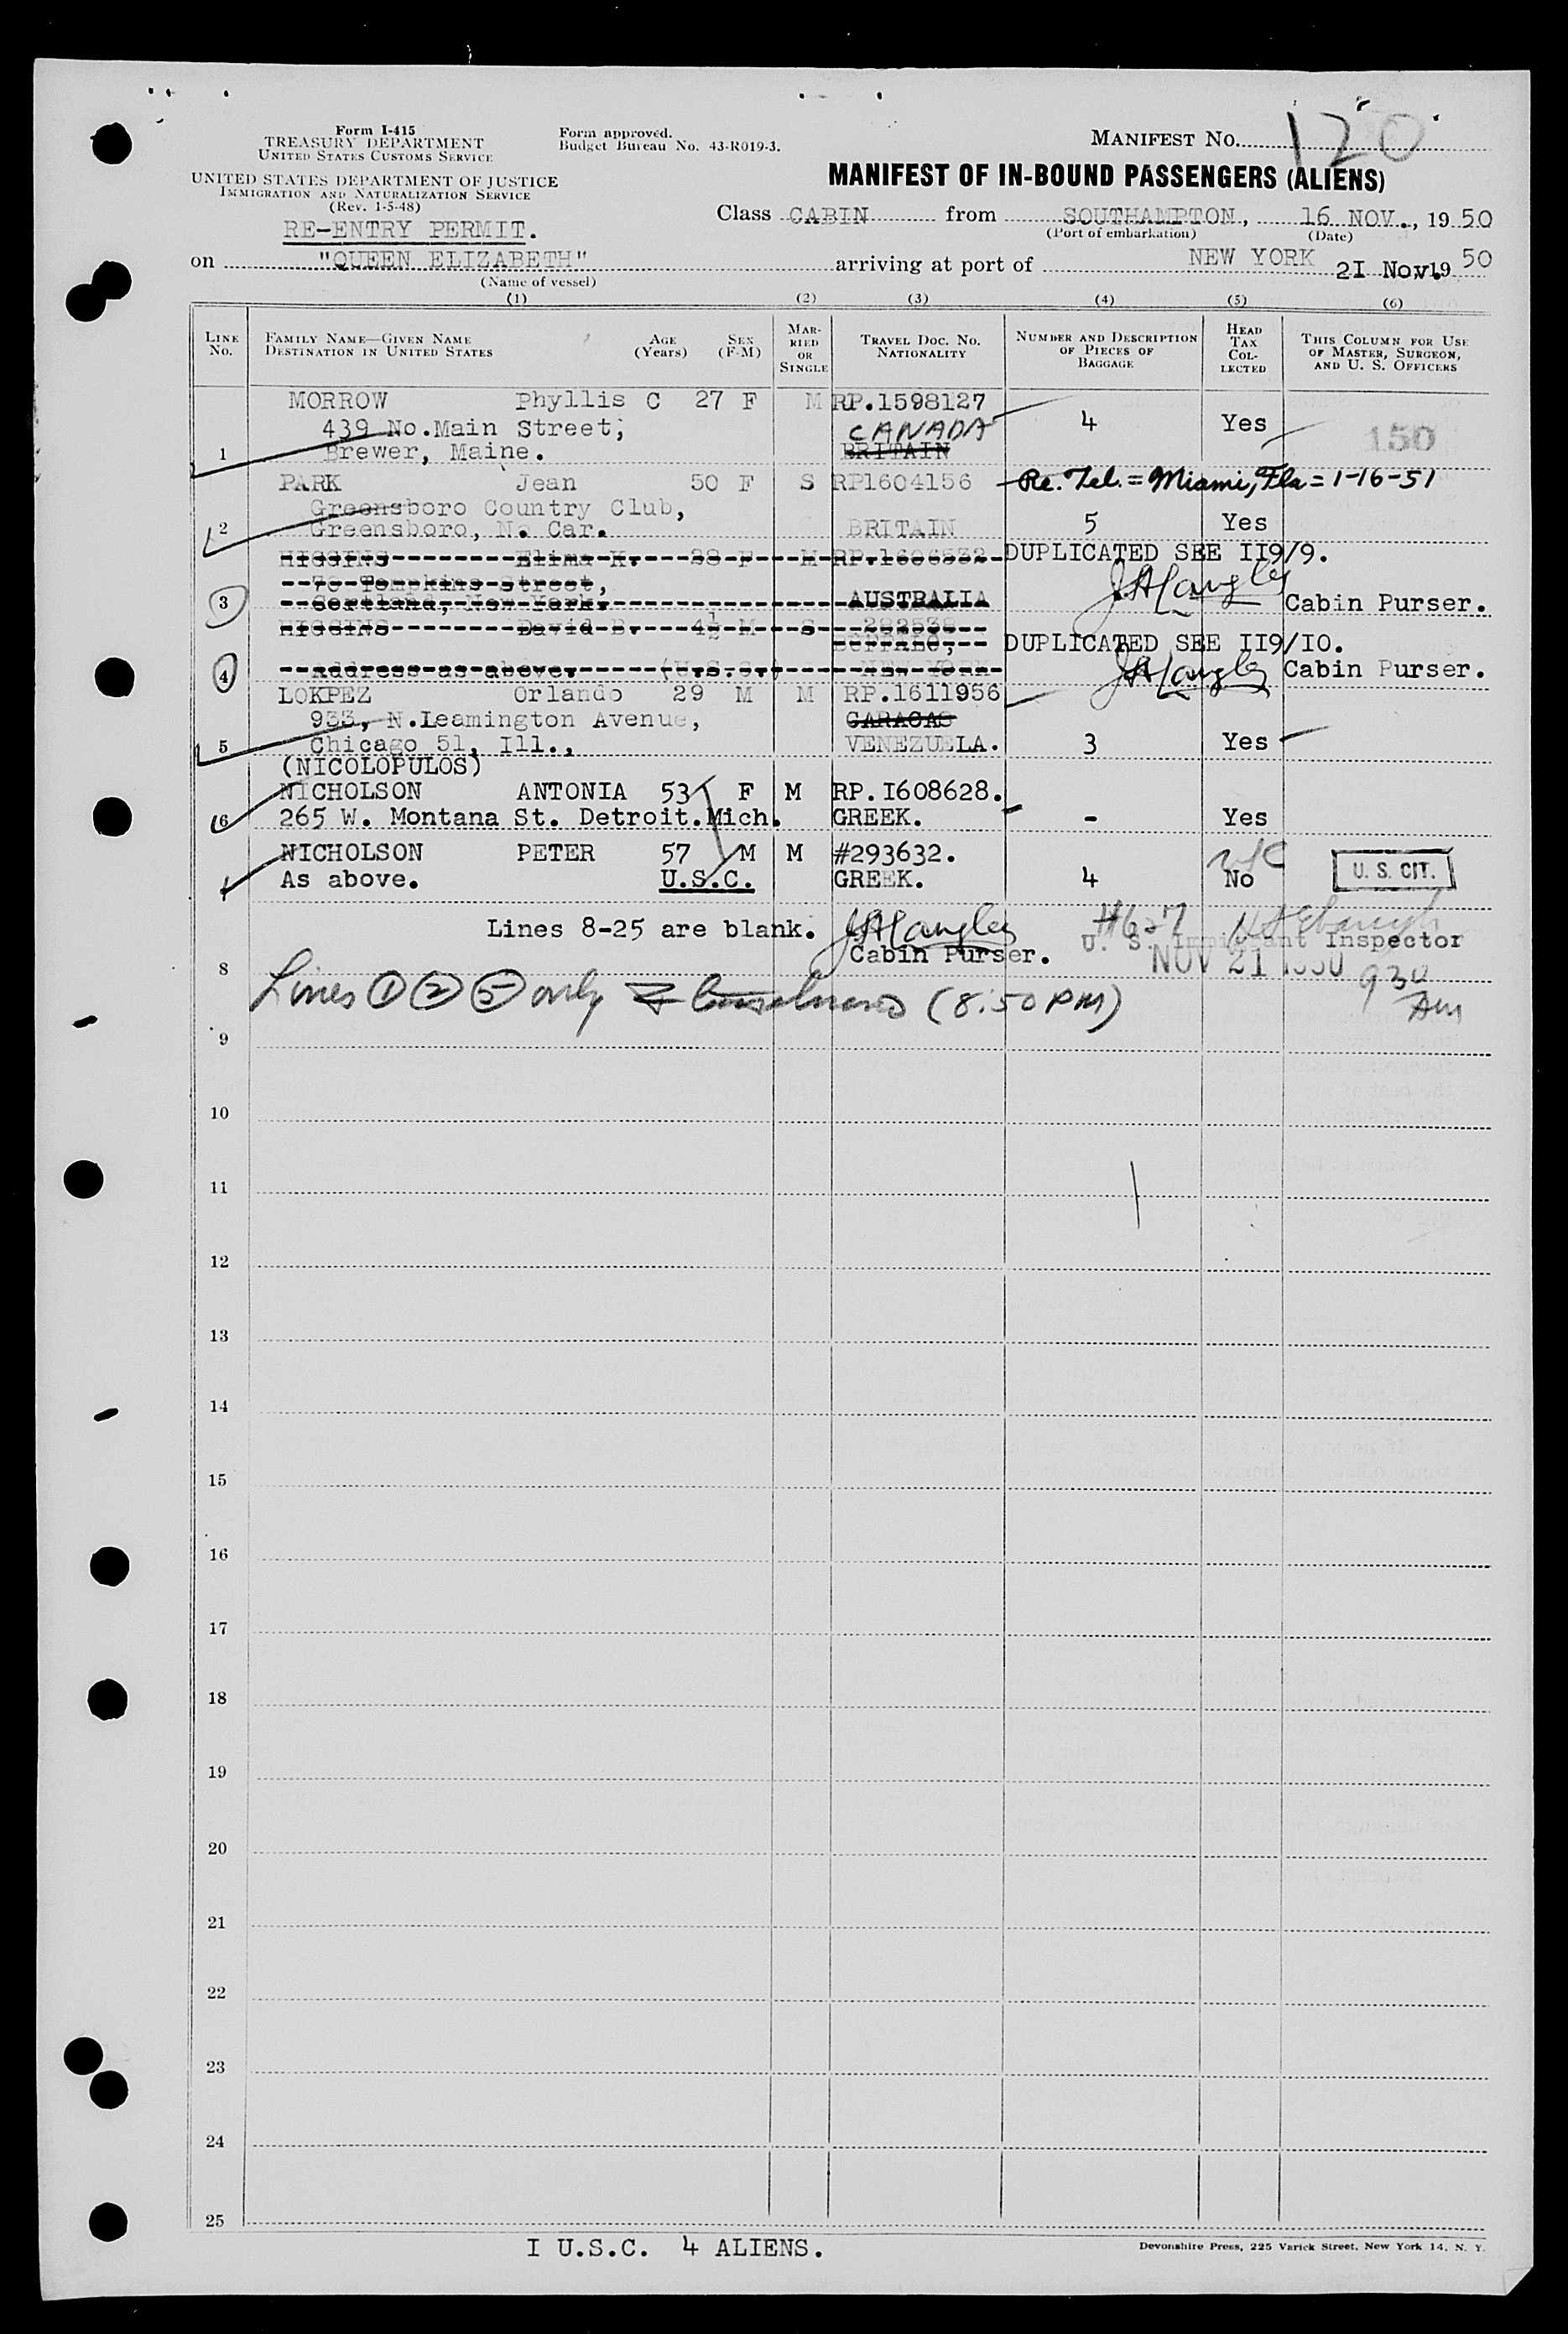 Form I-415
TREASURY DEPARTMENT
UNITED STATES CUSTOMS SERVICE
UNITED STATES DEPARTMENT OF JUSTICE
IMMIGRATION AND NATURALIZATION SERVICE
(Rev. 1-5-48)
RE-ENTRY PERMIT.
Form approved.
Budget Bureau No. 43-R019-3.
MANIFEST NO. 120
MANIFEST OF IN-BOUND PASSENGERS (ALIENS)
Class CABIN from SOUTHAMPTON, 16 NOV., 19 50
(Port of embarkation) (Date)
on "QUEEN ELIZABETH" arriving at port of NEW YORK 2I Nov. 19 50
(Name of vessel)
(1) (2) (3) (4) (5) (6)
LINE No. FAMILY NAME—GIVEN NAME DESTINATION IN UNITED STATES AGE (Years) SEX (F-M) MARRIED OR SINGLE TRAVEL DOC. NO. NATIONALITY NUMBER AND DESCRIPTION OF PIECES OF BAGGAGE HEAD TAX COLLECTED THIS COLUMN FOR USE OF MASTER, SURGEON, AND U. S. OFFICERS
MORROW Phyllis C 27 F M RP.1598127
439 No.Main Street; CANADA 4 Yes 150
1 Brewer, Maine. BRITAIN
PARK Jean 50 F S RP1604156 Re. Tel. = Miami, Fla = 1-16-51
Greensboro Country Club,
2 Greensboro, N. Car. BRITAIN 5 Yes
HIGGINS Elima K. 28 F M RP.1606532 DUPLICATED SEE II9/9.
Tompkins Street,
3 Cortland, New York. AUSTRALIA JALangley Cabin Purser.
HIGGINS David B. 4½ M S 282538
BUFFALO, DUPLICATED SEE II9/IO.
4 Address as above. (U.S.C.) NEW YORK JALangley Cabin Purser.
LOKPEZ Orlando 29 M M RP.1611956
933, N.Leamington Avenue, CARACAS
5 Chicago 51, Ill., VENEZUELA. 3 Yes
(NICOLOPULOS)
NICHOLSON ANTONIA 53 F M RP.I608628.
6 265 W. Montana St. Detroit.Mich. GREEK. - Yes
NICHOLSON PETER 57 M M #293632.
As above. U.S.C. GREEK. 4 No U. S. CIT.
Lines 8-25 are blank. JALangley #627
Cabin Purser. U. S. Immigrant Inspector
8 NOV 21 1950 930 Am
Lines 1 2 5 only (8:50 PM)
9
10
11
12
13
14
15
16
17
18
19
20
21
22
23
24
25
I U.S.C. 4 ALIENS.
Devonshire Press, 225 Varick Street, New York 14, N. Y.